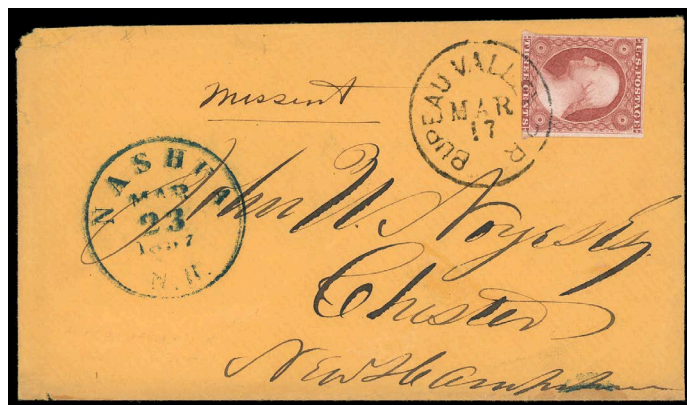 U.S. POSTAGE
THREE CENTS
BUREAU VALLEY OR
MAR
17
Missent
NASHUA
MAR
23
1857
N.H.
John W. Noyes Esq
Chester
New Hampshire